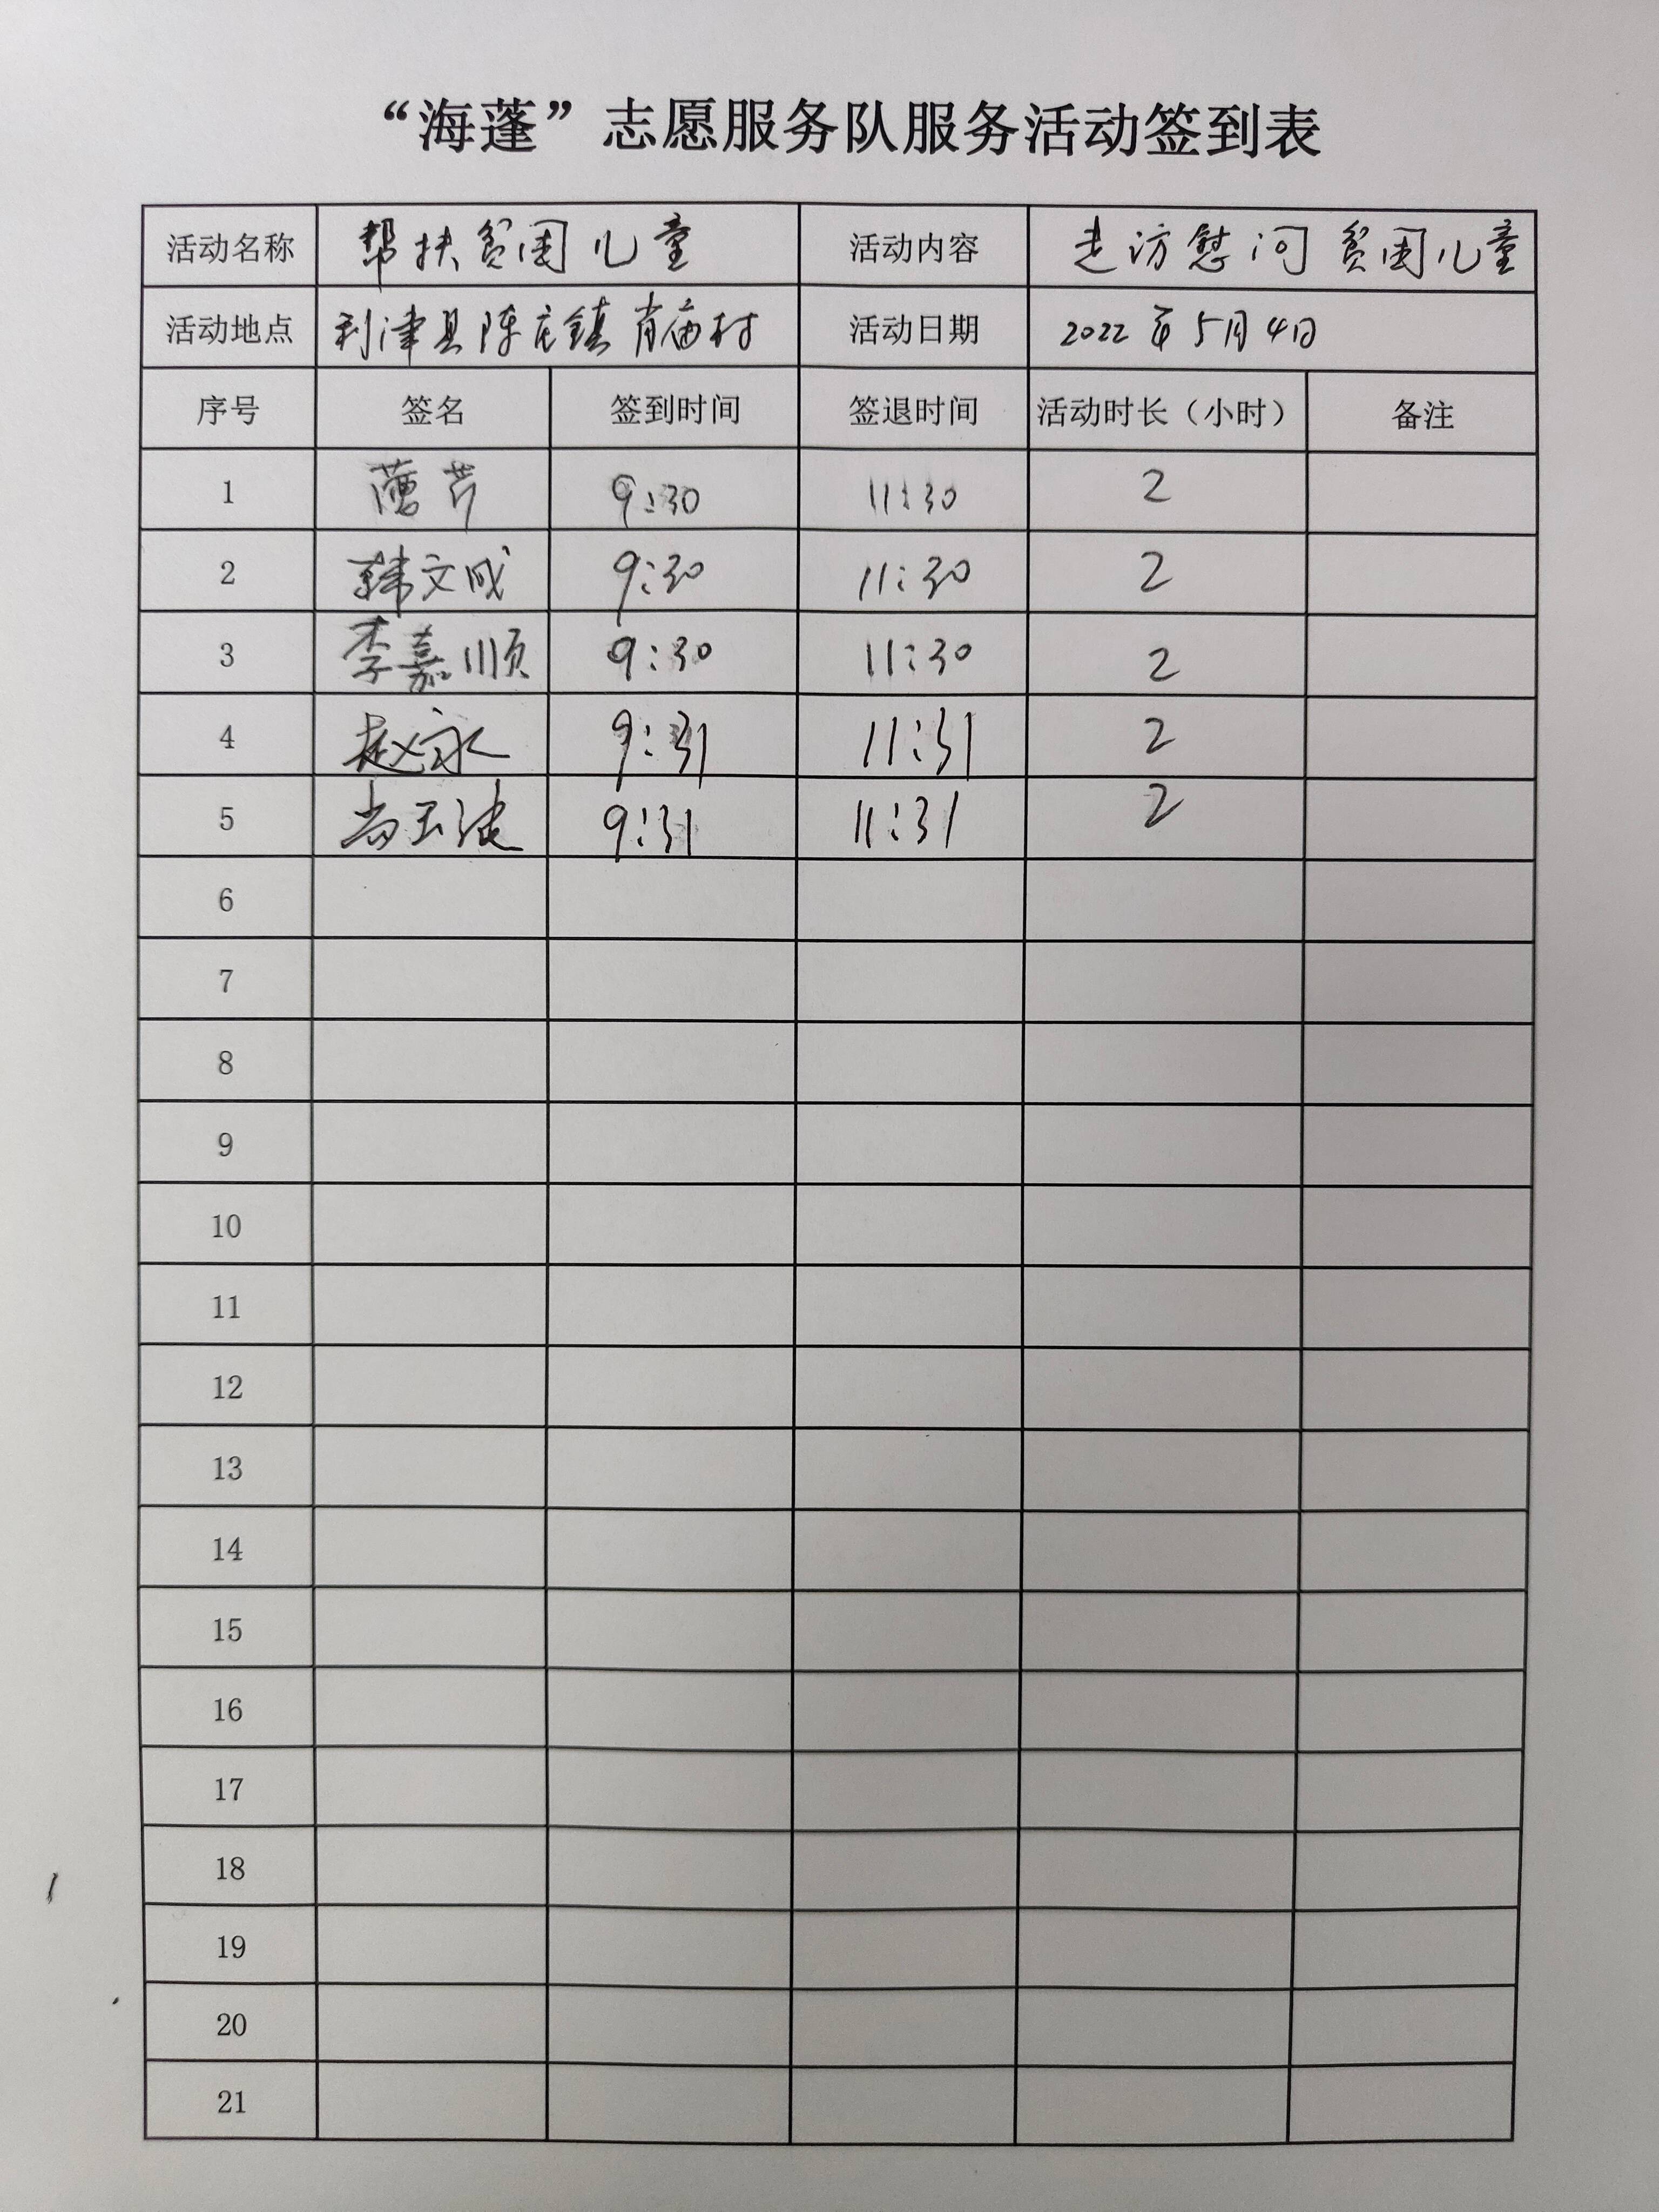 “海蓬”志愿服务队服务活动签到表
活动名称 帮扶贫困儿童 活动内容 走访慰问贫困儿童
活动地点 利津县陈庄镇肖庙村 活动日期 2022年5月4日
序号 签名 签到时间 签退时间 活动时长（小时） 备注
1 芹 9:30 11:30 2
2 韩文成 9:30 11:30 2
3 李嘉顺 9:30 11:30 2
4 赵永 9:31 11:31 2
5 尚玉 9:31 11:31 2
6
7
8
9
10
11
12
13
14
15
16
17
18
19
20
21